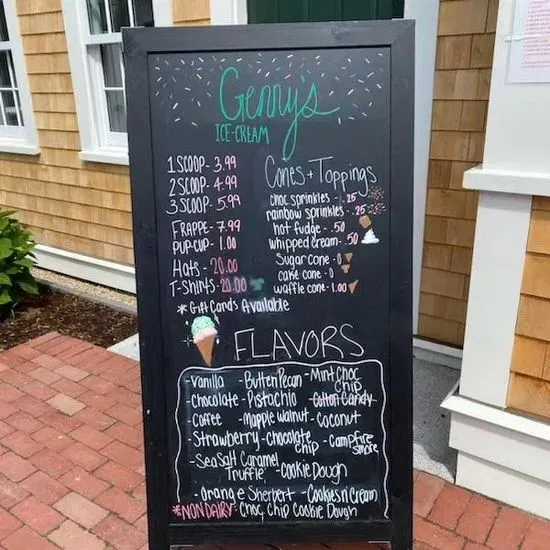 Genny's
ICE-CREAM
1 SCOOP - 3.99
2 SCOOP - 4.99
3 SCOOP - 5.99
FRAPPE - 7.99
PUP-CUP - 1.00
HATS - 20.00
T-SHIRTS - 20.00
*Gift Cards Available
Cones + Toppings
choc sprinkles - .25
rainbow sprinkles - .25
hot fudge - .50
whipped cream - .50
Sugar cone - 0
cake cone - 0
waffle cone - 1.00
FLAVORS
-Vanilla -Butter Pecan -Mint Choc Chip
-Chocolate -Pistachio -Cotton Candy
-Coffee -Mapple walnut -Coconut
-Strawberry -chocolate chip -Campfire smore
-Sea Salt Caramel Truffle, -Cookie Dough
-Orange Sherbert -Cookies n' Cream
*NONDAIRY: Choc, Chip Cookie Dough